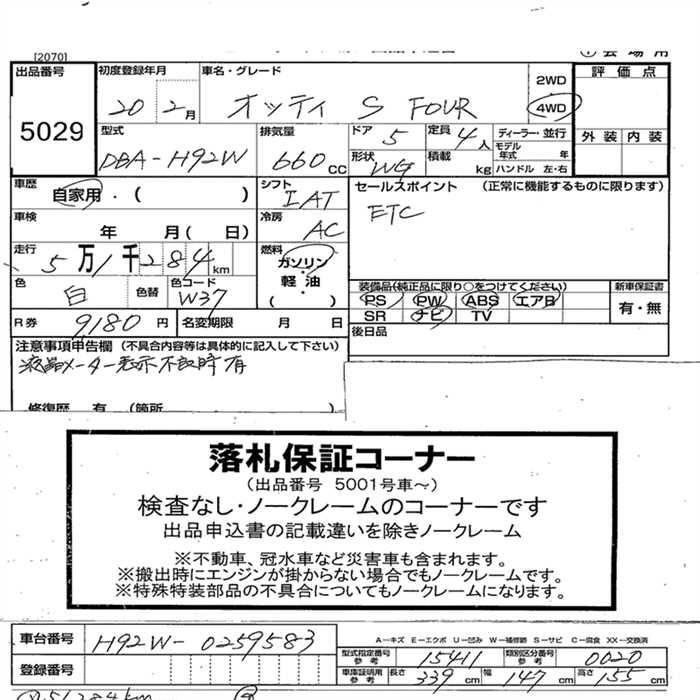 [2070]
出品番号
5029
初度登録年月
20 2月
車名・グレード
オッティ S FOUR
2WD
4WD
評価点
外装 内装
型式
DBA-H92W
排気量
660cc
ドア
5
定員
4人
形状
WG
積載
kg
ディーラー・並行
モデル年式 年
ハンドル 左・右
車歴
自家用・( )
シフト
IAT
セールスポイント (正常に機能するものに限ります)
ETC
車検
年 月( 日)
冷房
AC
走行
5万1千284km
燃料
ガソリン
・
軽油
( )
色
白
色替
色コード
W37
装備品(純正品に限り○をつけてください)
PS PW ABS エアB
SR ナビ TV
新車保証書
有・無
R券
9180円
名変期限 月 日
後日品
注意事項申告欄 (不具合内容等は具体的に記入して下さい)
液晶メーター表示不良時有
修復歴 有 (箇所 )
落札保証コーナー
(出品番号 5001号車〜)
検査なし・ノークレームのコーナーです
出品申込書の記載違いを除きノークレーム
※不動車、冠水車など災害車も含まれます。
※搬出時にエンジンが掛からない場合でもノークレームです。
※特殊特装部品の不具合についてもノークレームになります。
車台番号
H92W-0259583
登録番号
A-キズ E-エクボ U-凹み W-補修跡 S-サビ C-腐食 XX-交換済
型式指定番号 参考
15411
類別区分番号 参考
0020
車庫証明用 参考
長さ 339cm 幅 147cm 高さ 155cm
51284km